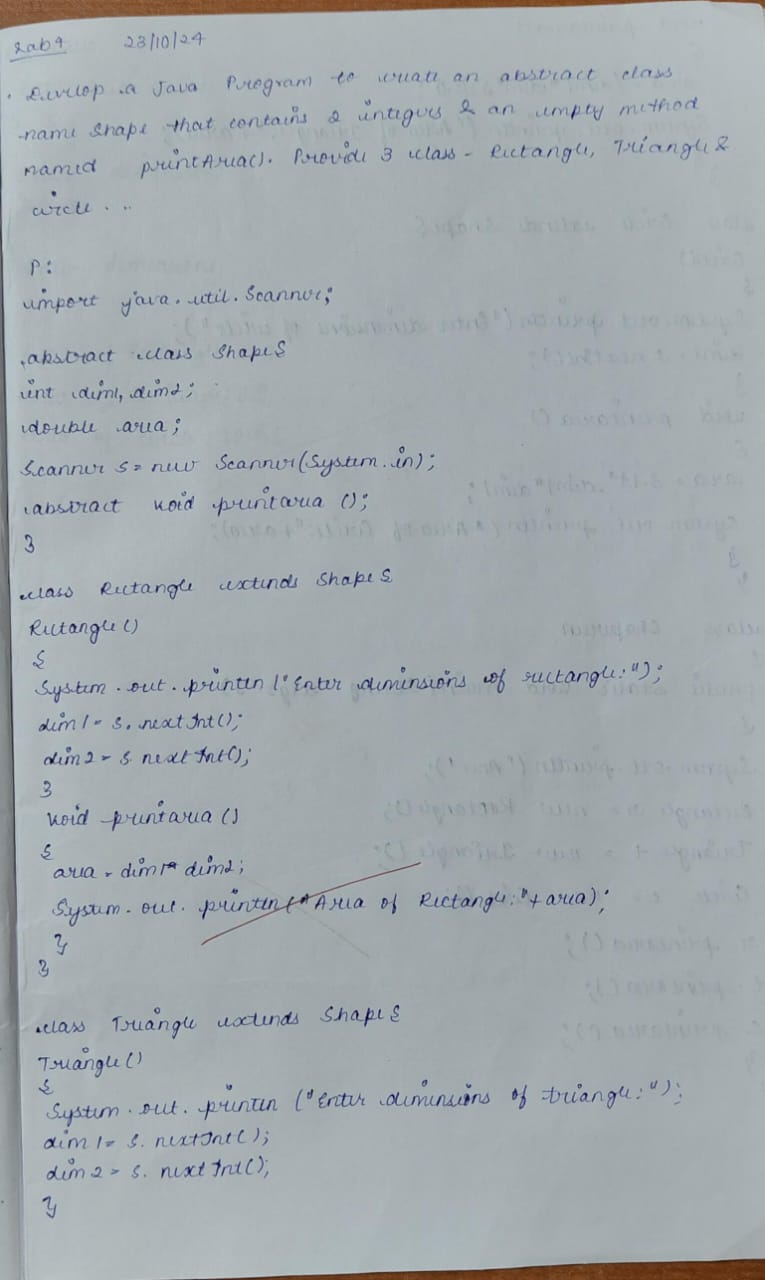 Lab 4 23/10/24
. Develop a Java Program to create an abstract class
name Shape that contains 2 integers & an empty method
named printArea(). Provide 3 class - Rectangle, Triangle &
circle . . .
P:
import java.util.Scanner;
abstract class Shape{
int dim1, dim2;
double area;
Scanner s = new Scanner(System.in);
abstract void printarea ();
}
class Rectangle extends Shape{
Rectangle()
{
System.out.println ("Enter dimensions of rectangle:");
dim1 = s.nextInt();
dim2 = s.nextInt();
}
void printarea ()
{
area = dim1* dim2;
System.out.println("Area of Rectangle:"+area);
}
}
class Triangle extends Shape{
Triangle()
{
System.out.println ("Enter dimensions of triangle:");
dim1 = s.nextInt();
dim2 = s.nextInt();
}